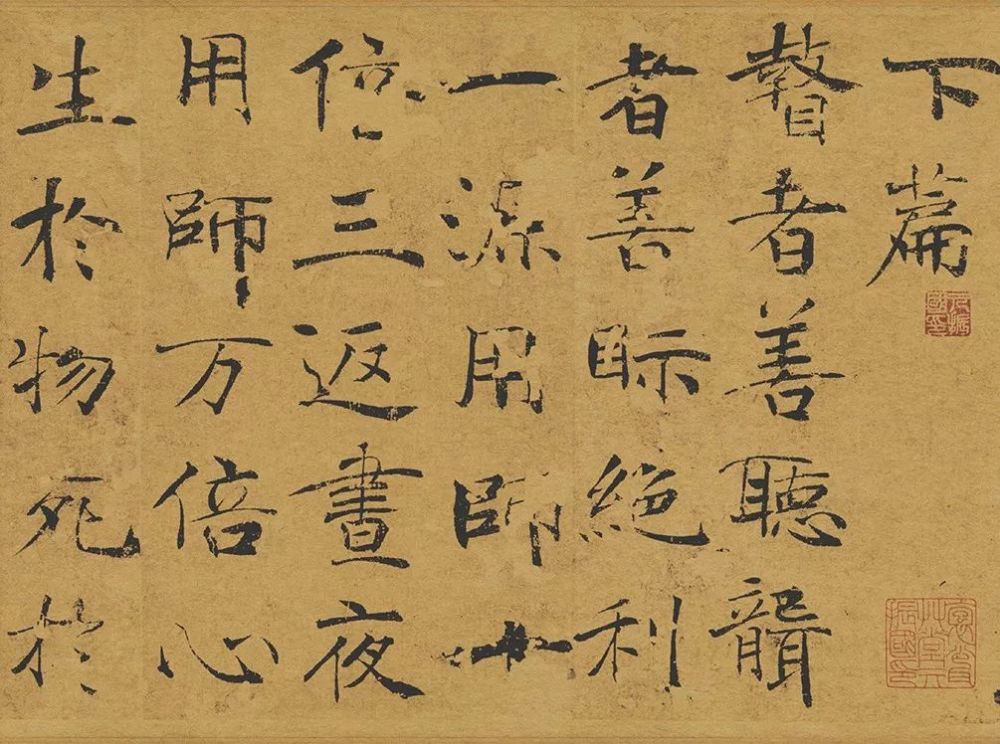 下篇
瞽者善聽聾
者善眎絕利
一源用師十
倍三返晝夜
用師万倍心
生於物死於